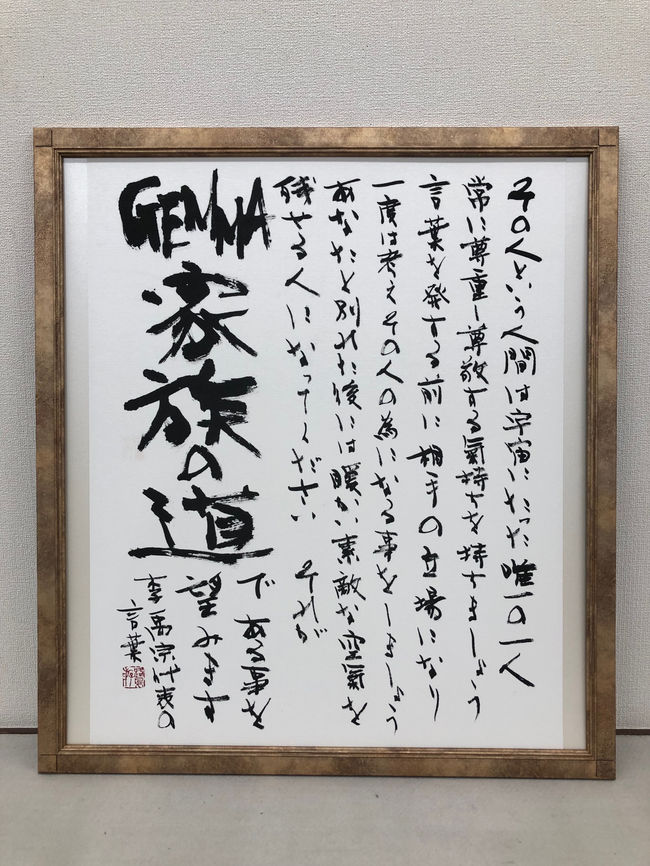 その人という人間は宇宙にたった唯一の一人
常に尊重し尊敬する氣持ちを持ちましょう
言葉を発する前に相手の立場になり
一度は考えその人の為になる事をしましょう
あなたと別れた後には暖かい素敵な空氣を
残せる人になってください それが
GEMMA
家族の道
である事を
望みます
李禹宗代表の
言葉